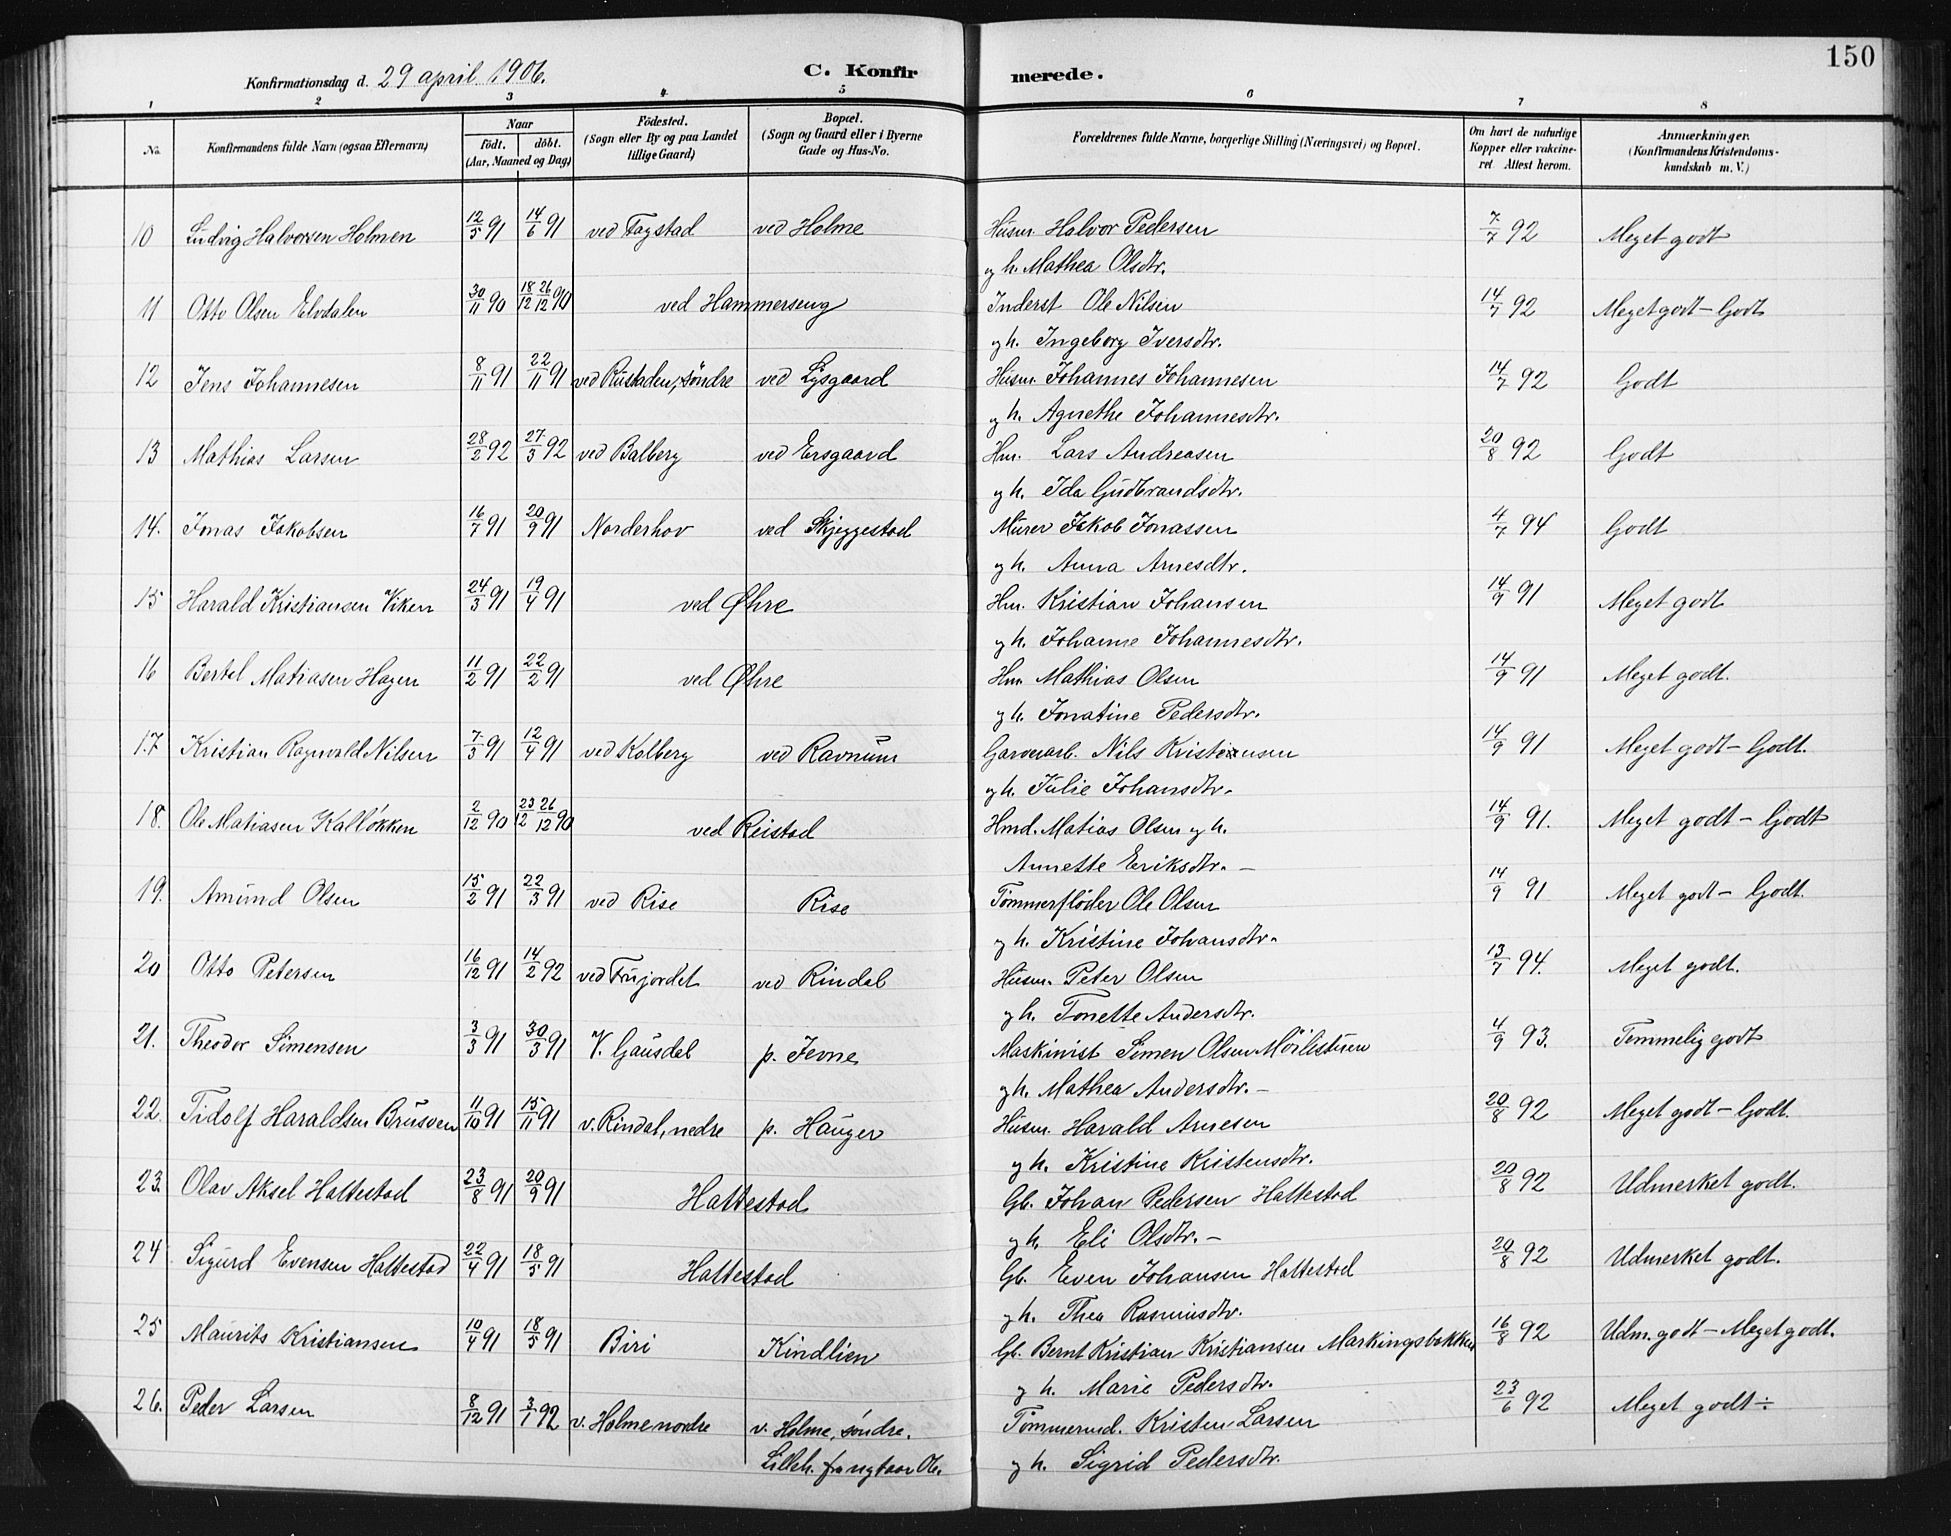 150
Konfirmationsdag d. 29 april 1906.
C. Konfirmerede.
1 2 3 4 5 6 7 8
No. Konfirmandens fulde Navn (ogsaa Efternavn) Naar födt. döbt. (Aar, Maaned og Dag) Födested. (Sogn eller By og paa Landet tillige Gaard) Bopæl. (Sogn og Gaard eller i Byerne Gade og Hus-No. Forældrenes fulde Navne, borgerlige Stilling (Næringsvei) og Bopæl. Om havt de naturlige Kopper eller vakcineret Attest herom. Anmærkninger. (Konfirmandens Kristendomskundskab m. V.)
10 Ludvig Halvorsen Holmen 12/5 91 14/6 91 ved Fagstad ved Holme Husm. Halvor Pedersen 7/7 92 Meget godt
og h. Mathea Olsdtr.
11 Otto Olsen Elvdalen 30/11 90 18/12 26/12 90 ved Hammerseng Inderst Ole Nilsen 14/7 92 Meget godt - Godt
og h. Ingeborg Iversdtr.
12 Jens Johannesen 8/11 91 22/11 91 ved Rustaden, söndre ved Lysgaard Husm. Johannes Johannesen 14/7 92 Godt
og h. Agnethe Johannesdtr.
13 Mathias Larsen 28/2 92 27/3 92 ved Balberg ved Ersgaard Hm. Lars Andreasen 20/8 92 Godt
og h. Ida Gudbrandsdtr.
14. Jonas Jakobsen 16/7 91 20/9 91 Norderhov ved Skjeggestad Murer Jakob Jonassen 4/7 94 Godt
og h. Anna Arnesdtr.
15 Harald Kristiansen Viken 24/3 91 19/4 91 ved Øhre Hm. Kristian Johansen 14/9 91 Meget godt
og h. Johanne Johannesdtr.
16 Bertel Matiasen Hagen 11/2 91 22/2 91 ved Øhre Hm. Mathias Olsen 14/9 91 Meget godt.
og h. Jonatine Pedersdtr.
17 Kristian Ragnvald Nilsen 7/3 91 12/4 91 ved Kolberg ved Ravnum Garverarb. Nils Kristiansen 14/9 91 Meget godt - Godt.
og h. Julie Johansdtr.
18. Ole Matiasen Kalløkken 2/12 90 23/12 26/12 90 ved Reistad Hmd. Matias Olsen og h. 14/9 91. Meget godt - Godt
Annette Eriksdtr. -
19. Amund Olsen 15/2 91 22/3 91 ved Rise Rise Tømmerfløder Ole Olsen 14/9 91 Meget godt - Godt.
og h. Kristine Johansdtr.
20 Otto Petersen 16/12 91 14/2 92 ved Frujordet ved Rindal Husm. Peter Olsen 13/7 94. Meget godt.
og h. Tonette Andersdtr.
21. Theodor Simensen 3/3 91 30/3 91 V. Gausdal p. Jevne Maskinist Simen Olsen Møilistuen 4/9 93. Temmelig godt
og h. Mathea Andersdtr. -
22. Tidolf Haraldsen Brusven 11/10 91 15/11 91 v. Rindal, nedre p. Hauger Husm. Harald Arnesen 20/8 92 Meget godt - Godt.
og h. Kristine Kristensdtr.
23. Olav Aksel Hattestad 23/8 91 20/9 91 Hattestad Gb. Johan Pedersen Hattestad 20/8 92 Udmerket godt.
og h. Eli Olsdtr. -
24 Sigurd Evensen Hattestad 22/4 91 18/5 91 Hattestad Gb. Even Johansen Hattestad 20/8 92 Udmerket godt.
og h. Thea Rasmusdtr.
25 Maurits Kristiansen 10/4 91 18/5 91 Biri Kindlien Gb. Bernt Kristian Kristiansen Markingsbakken 16/8 92 Udm. godt - Meget godt.
og h. Marie Pedersdtr.
26. Peder Larsen 8/12 91 3/1 92 v. Holme nordre v. Holme, søndre. Tømmermd. Kristen Larsen 23/6 92 Meget godt ÷
Lilleh. og h. Sigrid Pedersdtr.